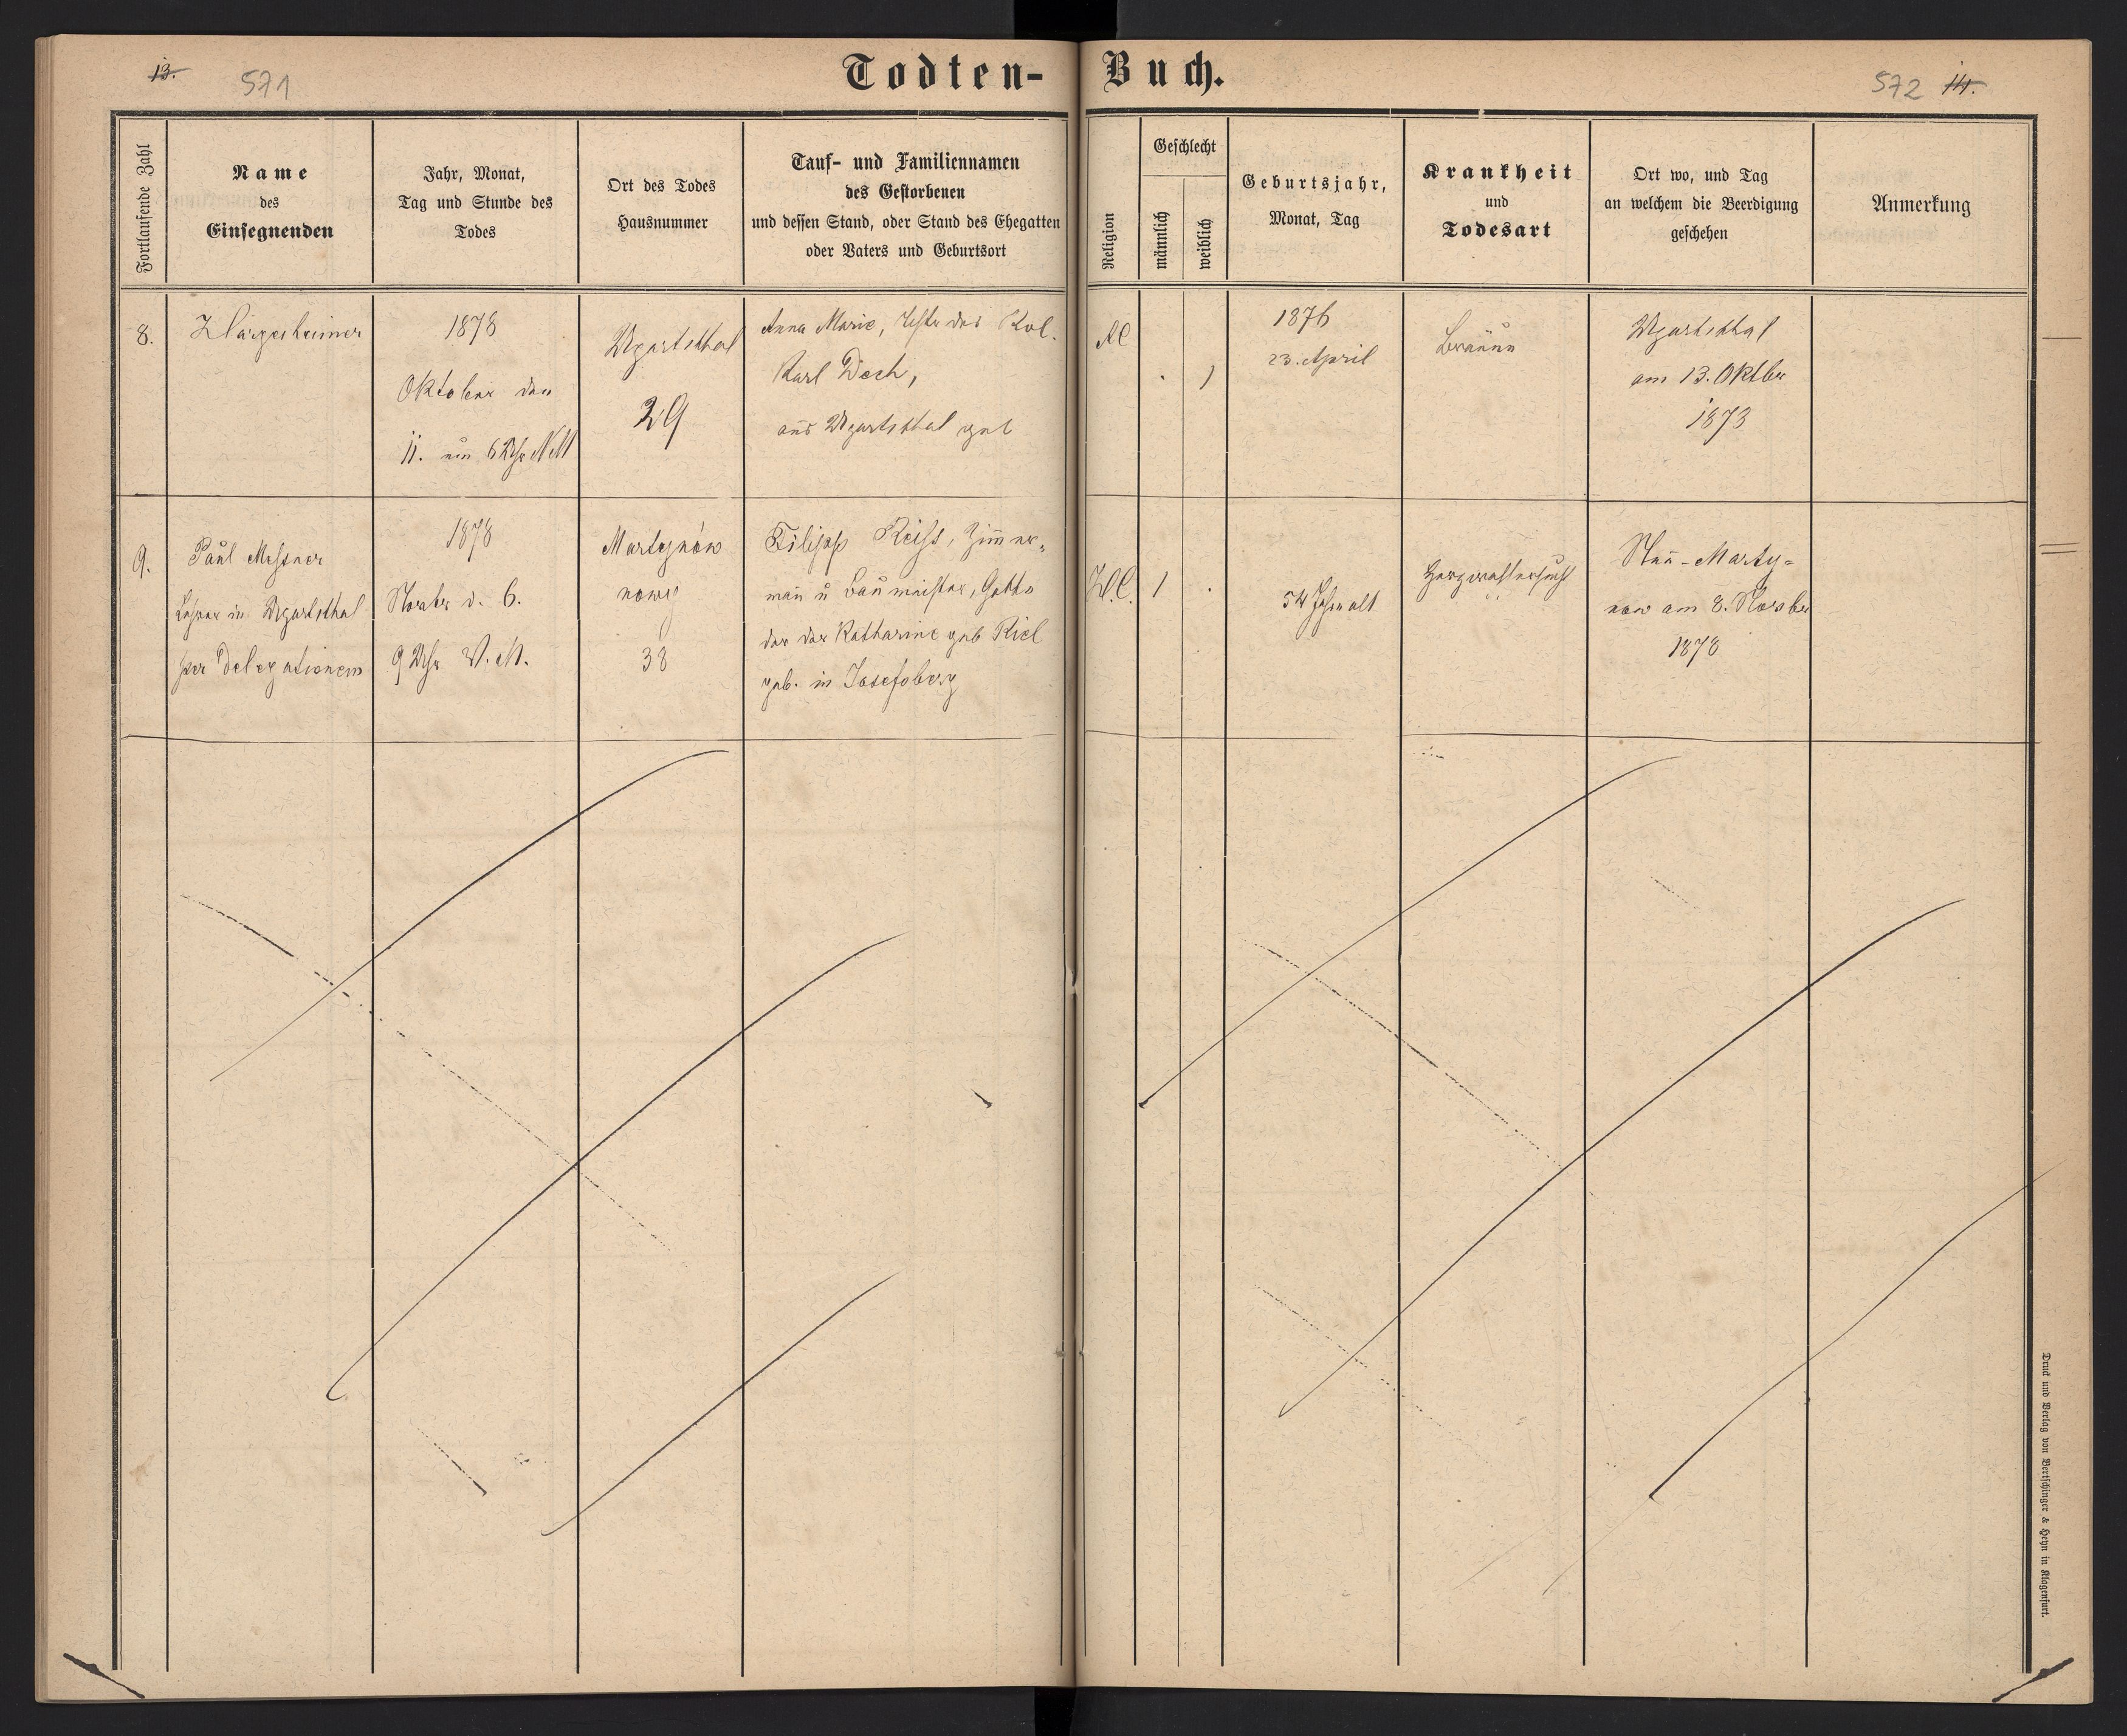 13. 571
Todten-Buch.
572 14.
Fortlaufende Zahl
Name
des
Einsegnenden
Jahr, Monat,
Tag und Stunde des
Todes
Ort des Todes
Hausnummer
Tauf- und Familiennamen
des Gestorbenen
und dessen Stand, oder Stand des Ehegatten
oder Vaters und Geburtsort
Religion
Geschlecht
männlich
weiblich
Geburtsjahr,
Monat, Tag
Krankheit
und
Todesart
Ort wo, und Tag
an welchem die Beerdigung
geschehen
Anmerkung
8.
Hargesheimer
1878
Oktober den
11. um 6 Uhr NM
Ugartsthal
29
Anna Marie, des Kol.
Karl Dech,
aus Ugartsthal geb
1
1876
23. April
Bräune
Ugartsthal
am 13. Oktber
1878
9.
Paul Messner
Lehrer in Ugartsthal
per Delegationem
1878
Novbr d. 6.
9 Uhr V.M.
Martynów
nowy
38
Filipp Reiss, Zimmer-
man u Baumeister, Gatte
der Katharine geb Kiel
geb. in Josefsberg
H.C.
1
54 Jahr alt
Herzwassersucht
Neu-Marty-
now am 8. Novber
1878
Druck und Verlag von Bertschinger & Heyn in Klagenfurt.